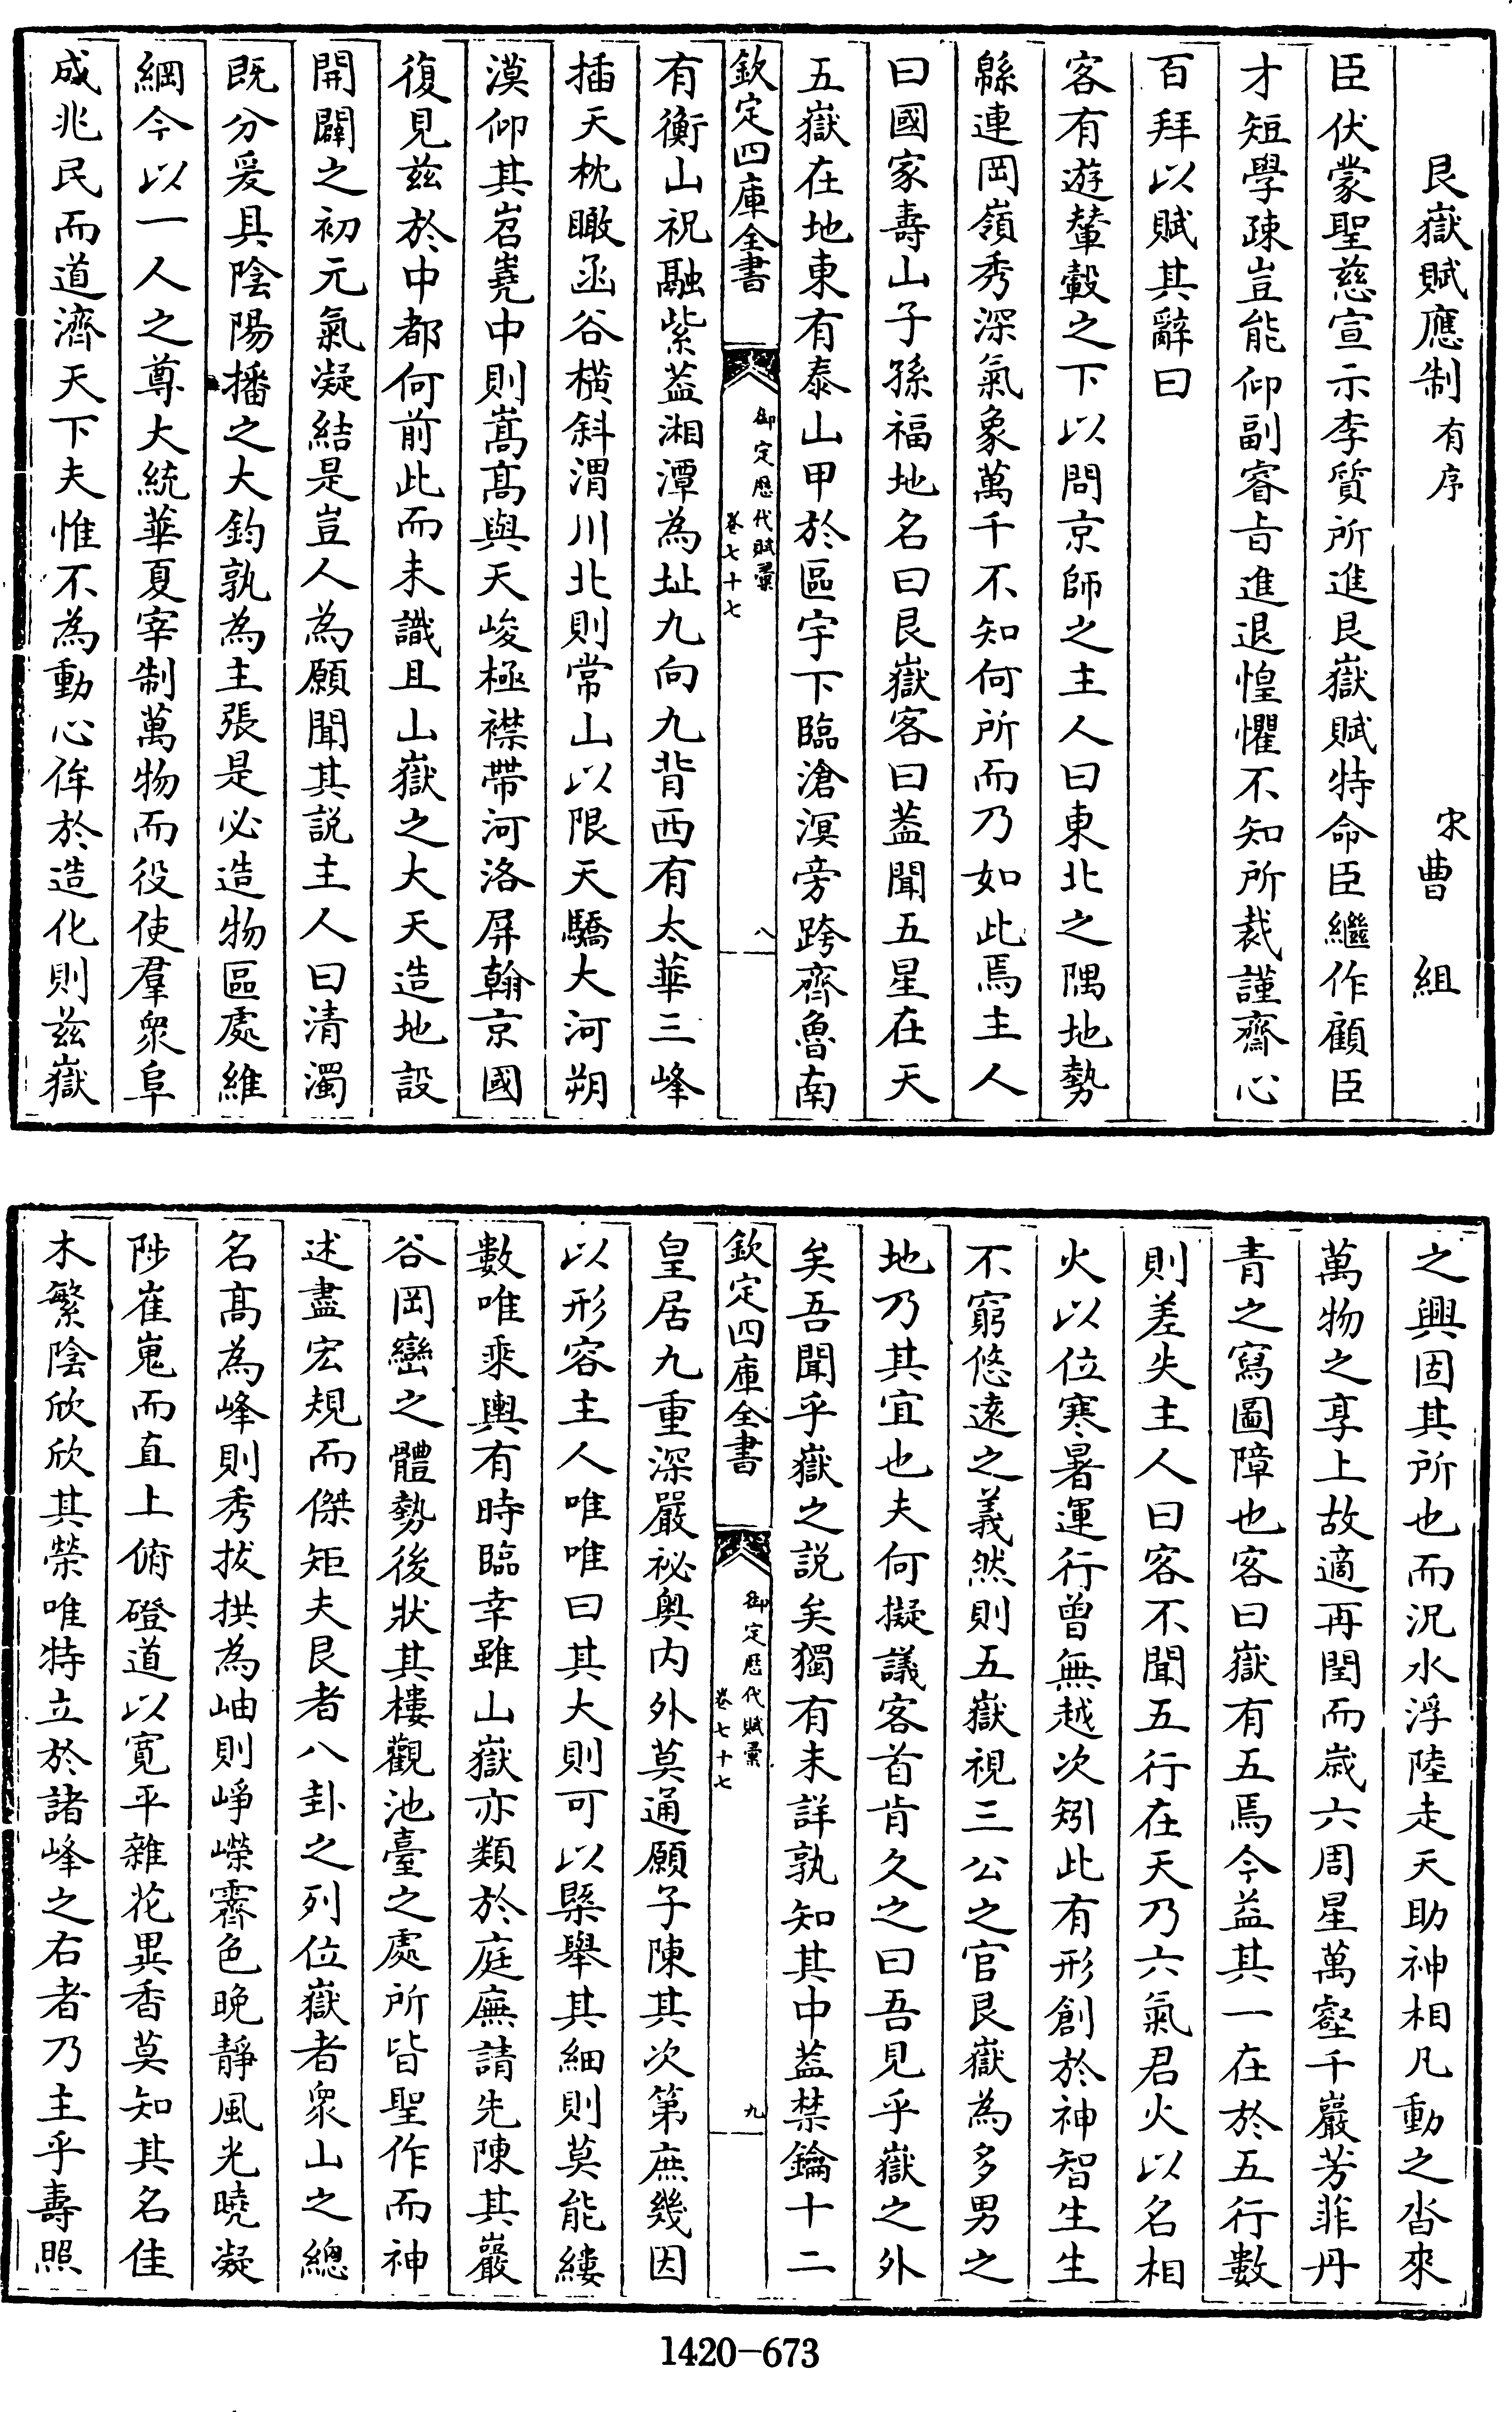 艮嶽賦應制有序　宋曹組
臣伏蒙聖慈宣示李質所進艮嶽賦特命臣繼作顧臣
才短學疎豈能仰副睿旨進退惶懼不知所裁謹齋心
百拜以賦其辭曰
客有遊輦轂之下以問京師之主人曰東北之隅地勢
緜連岡嶺秀深氣象萬千不知何所而乃如此焉主人
曰國家壽山子孫福地名曰艮嶽客曰葢聞五星在天
五嶽在地東有泰山甲於區宇下臨滄溟旁跨齊魯南
欽定四庫全書
御定歷代賦彙
卷七十七
八
有衡山祝融紫葢湘潭為址九向九背西有太華三峰
插天枕瞰函谷橫斜渭川北則常山以限天驕大河朔
漠仰其岧嶤中則嵩髙與天峻極襟帶河洛屏翰京國
復見兹於中都何前此而未識且山嶽之大天造地設
開闢之初元氣凝結是豈人為願聞其說主人曰清濁
既分爰具陰陽播之大鈞孰為主張是必造物區處維
綱今以一人之尊大統華夏宰制萬物而役使羣衆阜
成兆民而道濟天下夫惟不為動心侔於造化則兹嶽
之興固其所也而況水浮陸走天助神相凡動之沓來
萬物之享上故適再閏而嵗六周星萬壑千巖芳菲丹
青之寫圖障也客曰嶽有五焉今益其一在於五行數
則差失主人曰客不聞五行在天乃六氣君火以名相
火以位寒暑運行曾無越次矧此有形創於神智生生
不窮悠逺之義然則五嶽視三公之官艮嶽為多男之
地乃其宜也夫何擬議客首肯久之曰吾見乎嶽之外
矣吾聞乎嶽之說矣獨有未詳孰知其中葢禁鑰十二
欽定四庫全書
御定歷代賦彙
卷七十七
九
皇居九重深嚴祕奥内外莫通願子陳其次第庶幾因
以形容主人唯唯曰其大則可以槩舉其細則莫能縷
數唯乘輿有時臨幸雖山嶽亦類於庭廡請先陳其巖
谷岡巒之體勢後狀其樓觀池臺之處所皆聖作而神
述盡宏規而傑矩夫艮者八卦之列位嶽者衆山之總
名髙為峰則秀拔拱為岫則崢嶸霽色晚靜風光曉凝
陟崔嵬而直上俯磴道以寛平雜花異香莫知其名佳
木繁陰欣欣其榮唯特立於諸峰之右者乃主乎壽照
1420-673